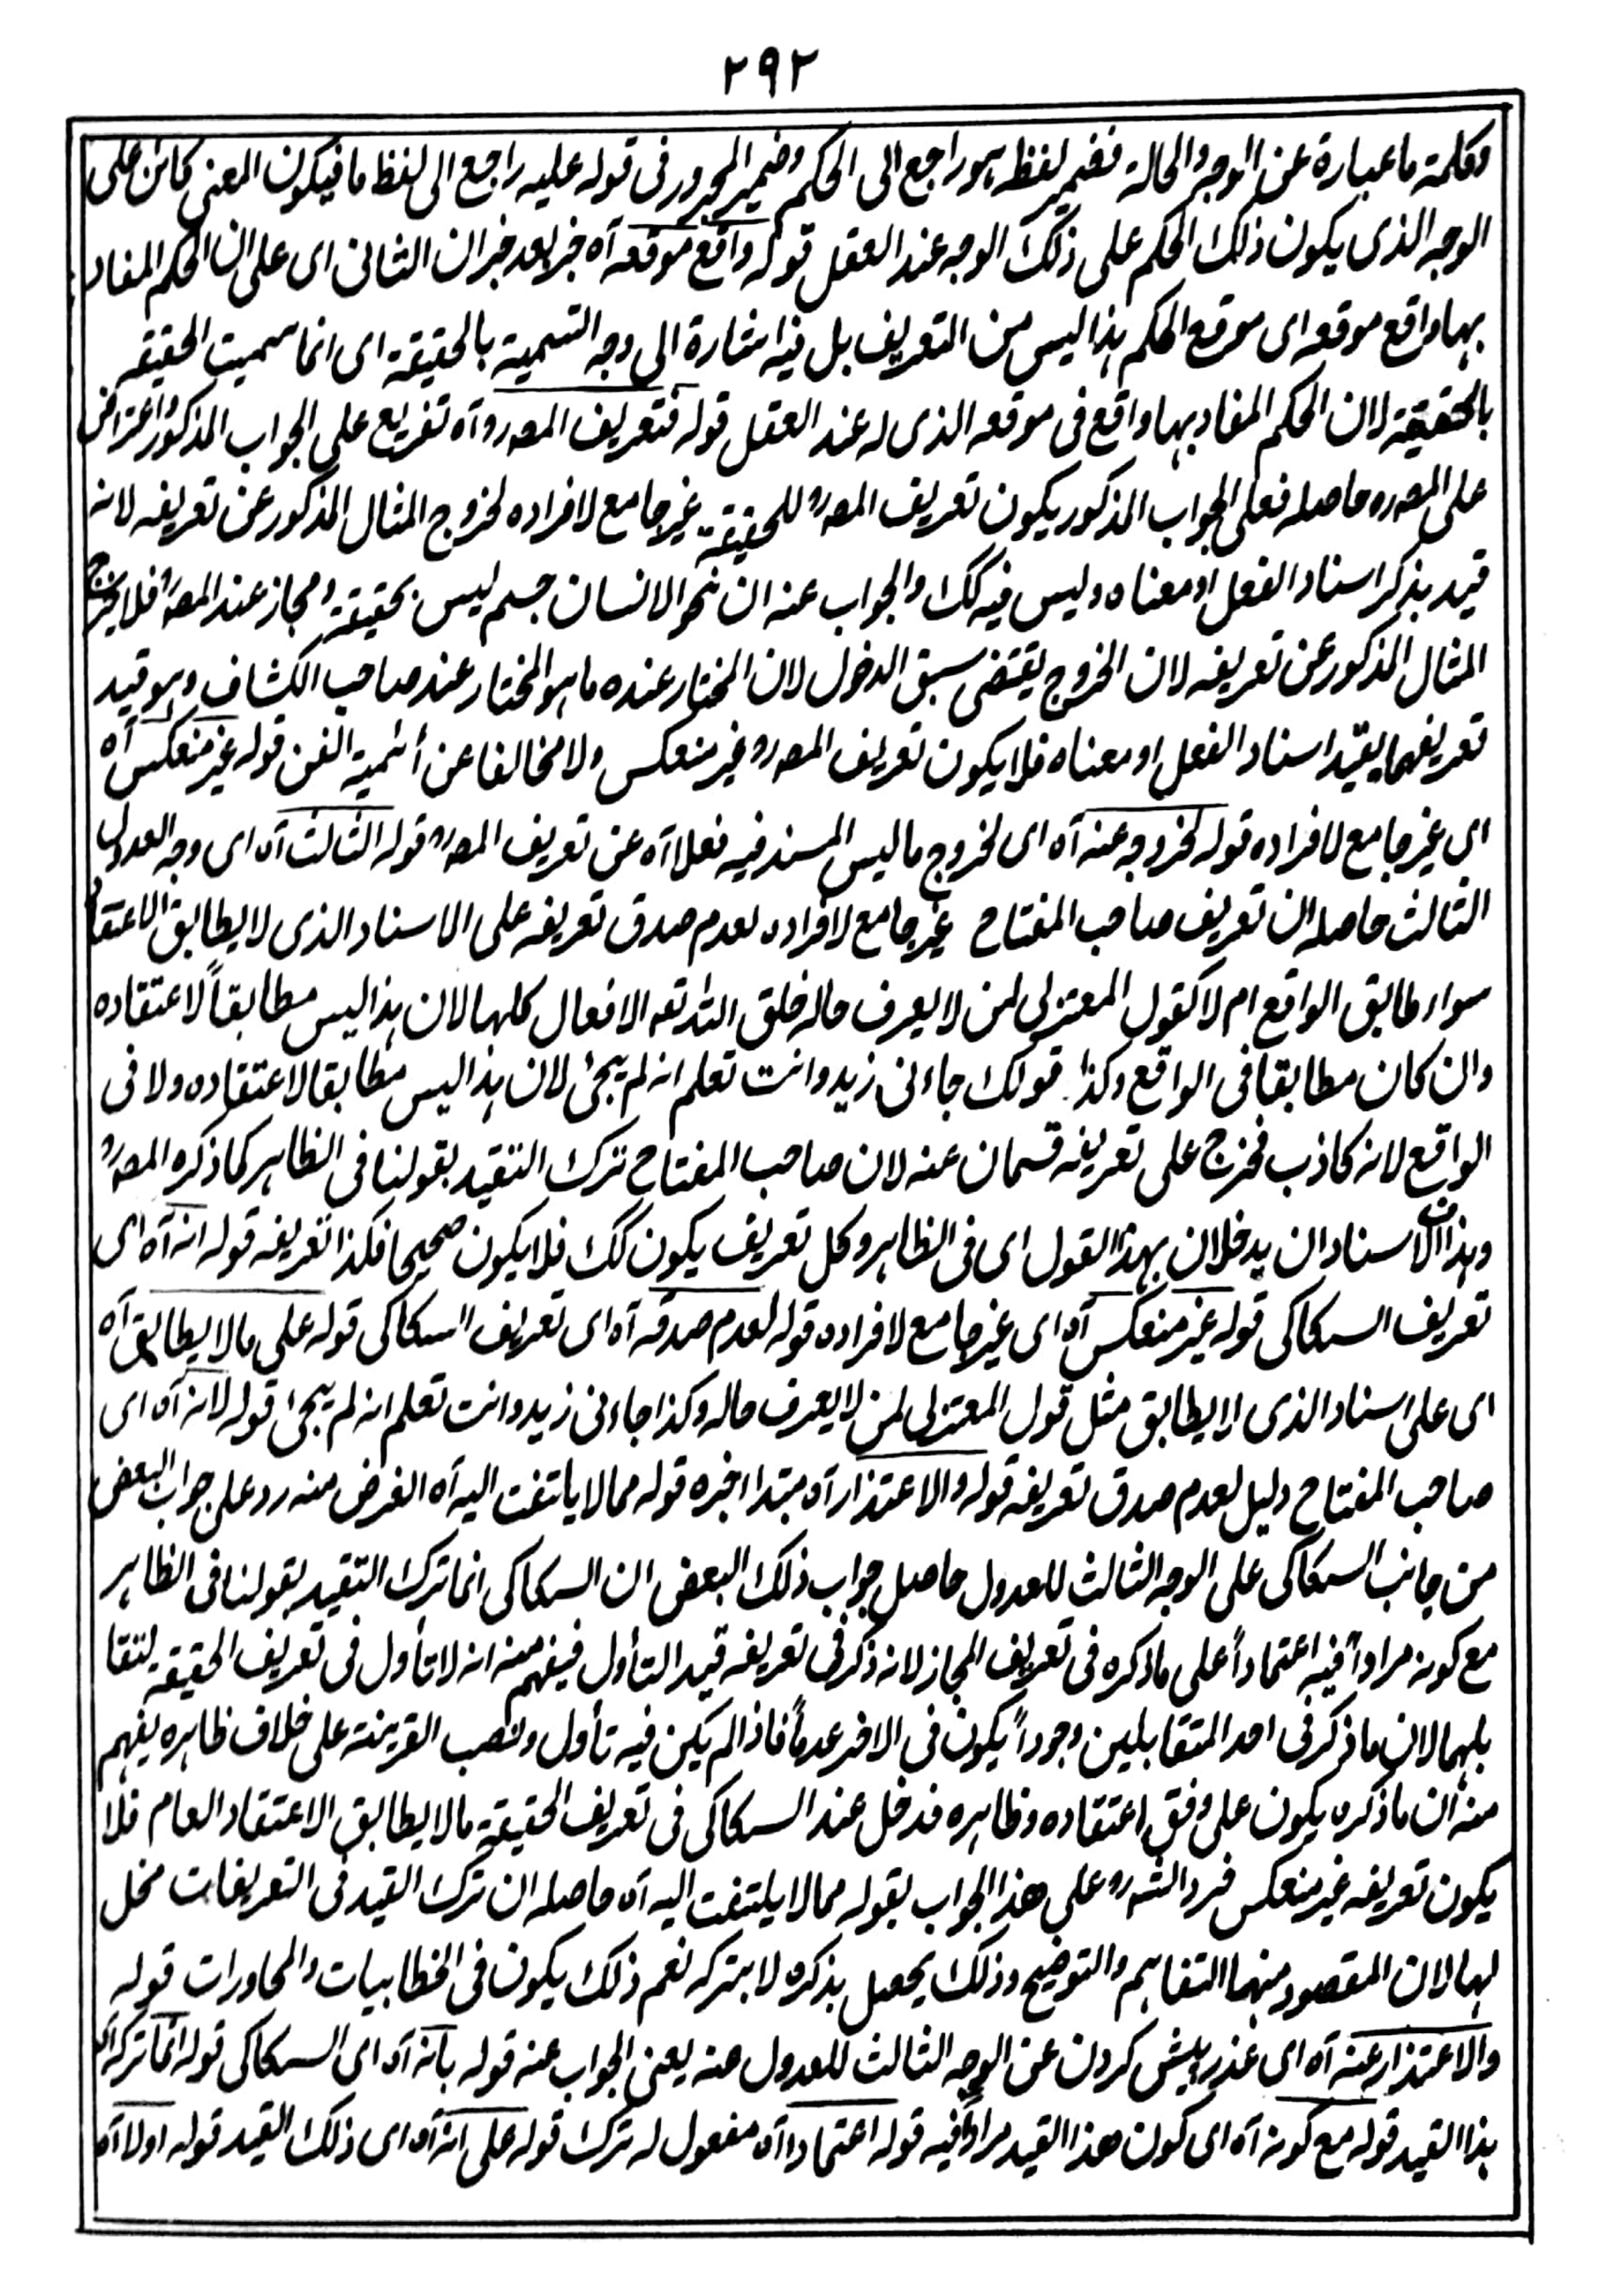 ٢٩٢
وکلمة ما عبارة عن الوجه والحالة فضمیر لفظ ہو راجع الی الحکم وضمیر المجرور فی قوله علیه راجع الی لفظ ما فیکون المعنی کائن علی
الوجه الذی یکون ذلک الحکم علی ذلک الوجه عند العقل قوله واقع موقعه آه خبر بعد خبر ان الثانی ای علی ان الحکم المفاد
بہا واقع موقعه ای موقع الحکم ہذا لیس من التعریف بل فیه اشارة الی وجه التسمیة بالحقیقة ای انما سمیت الحقیقه
بالحقیقة لان الحکم المفاد بہا واقع فی موقعه الذی له عند العقل قوله فتعریف المصہ رہ آه تفریع علی الجواب المذکور واعتراض
علی المصہ رہ حاصله فعلی الجواب المذکور یکون تعریف المصہ رہ للحقیقة غیر جامع لافراده لخروج المثال المذکور عن تعریفه لانه
قید بذکر اسناد الفعل او معناه ولیس فیه کک والجواب عنه ان نحو الانسان جسم لیس بحقیقة ومجاز عند المصہ رہ فلا یخرج
المثال المذکور عن تعریفه لان الخروج یقتضی سبق الدخول لان المختار عنده ما ہو المختار عند صاحب الکشاف وہو قید
تعریفہما بقید اسناد الفعل او معناه فلا یکون تعریف المصہ رہ غیر منعکس ولا مخالفا عن أئمیة الفن قوله غیر منعکس آه
ای غیر جامع لافراده قوله لخروجه عنه آه ای لخروج ما لیس المسند فیه فعلا آه عن تعریف المصہ رہ قوله الثالث آه ای وجه العدول
الثالث حاصله ان تعریف صاحب المفتاح غیر جامع لافراده لعدم صدق تعریفه علی الاسناد الذی لا یطابق الاعتقاد
سواء طابق الواقع ام لا کقول المعتزلی لمن لا یعرف حاله خلق اللہ تعہ الافعال کلہا لان ہذا لیس مطابقاً لاعتقاده
وان کان مطابقا فی الواقع وکذا قولک جاءنی زید وانت تعلم انه لم یجئ لان ہذا لیس مطابقا لاعتقاده ولا فی
الواقع لانه کاذب فخرج علی تعریفه قسمان عنه لان صاحب المفتاح ترک التقید بقولنا فی الظاہر کما ذکره المصہ رہ
وہذان الاسنادان یدخلان بہذا القول ای فی الظاہر وکل تعریف یکون کک فلا یکون صحیحا فکذا تعریفه قوله انه آه ای
تعریف السکاکی قوله غیر منعکس آه ای غیر جامع لافراده قوله لعدم صدقه آه ای تعریف السکاکی قوله علی ما لا یطابق آه
ای علی اسناد الذی لا یطابق مثل قول المعتزلی لمن لا یعرف حاله وکذا جاءنی زید وانت تعلم انه لم یجئ قوله لانه آه ای
صاحب المفتاح دلیل لعدم صدق تعریفه قوله والاعتذار آه مبتدا خبره قوله مما لا یاتتفت الیه آه الغرض منه رد علی جواب البعض
من جانب السکاکی علی الوجه الثالث للعدول حاصل جواب ذلک البعض ان السکاکی انما ترک التقید بقولنا فی الظاہر
مع کونه مراداً فیه اعتماداً علی ما ذکره فی تعریف المجاز لانه ذکر فی تعریفه قید التأول فیفہم منه انه لا تأول فی تعریف الحقیقة لتقا
بلہما لان ما ذکر فی احد المتقابلین وجوداً یکون فی الاخر عدماً فاذا لم یکن فیه تأول ونصب القرینة علی خلاف ظاہره یفہم
منه ان ما ذکره یکون علی وفق اعتقاده وظاہره فدخل عند السکاکی فی تعریف الحقیقة ما لا یطابق الاعتقاد العام فلا
یکون تعریفه غیر منعکس فرد الشہ رہ علی ھذا الجواب بقوله مما لا یلتفت الیه آه حاصله ان ترک القید فی التعریفات مخل
لہا لان المقصود منہما التفاہم والتوضیح وذلک یحصل بذکره لا بترکه نعم ذلک یکون فی الخطابیات والمحاورات قوله
والاعتذار عنه آه ای عذر پیش کردن عن الوجه الثالث للعدول منه یعنی الجواب عنه قوله بانه آه ای السکاکی قوله انما ترکه آه
ہذا القید قوله مع کونه آه ای کون ھذا القید مراداً فیه قوله اعتمادا آه مفعول له ترک قوله علی انه آه ای ذلک القید قوله اولا آه